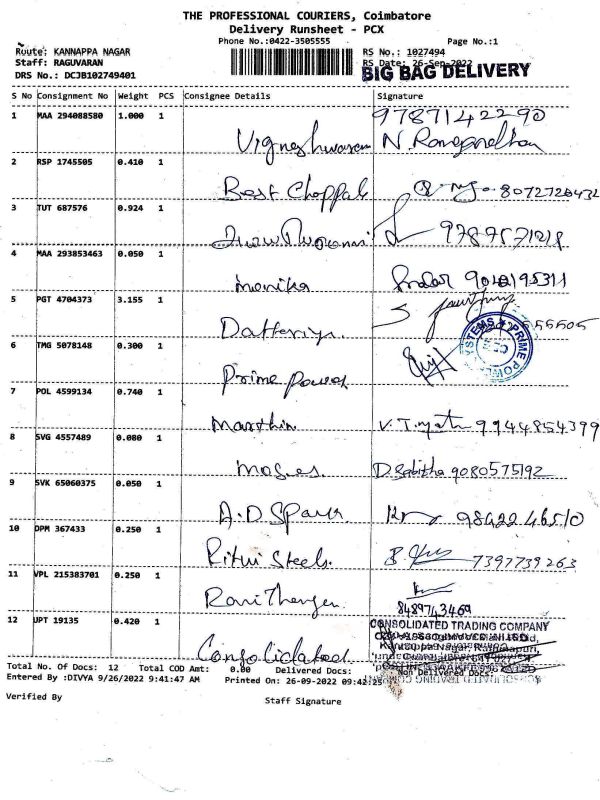 THE PROFESSIONAL COURIERS, Coimbatore
Delivery Runsheet - PCX
Phone No.:0422-3505555
Page No.:1
Route: KANNAPPA NAGAR
RS No.: 1027494
Staff: RAGUVARAN
RS Date: 26-Sep-2022
DRS No.: DCJB102749401
BIG BAG DELIVERY
S No Consignment No Weight PCS Consignee Details Signature
1 MAA 294088580 1.000 1
9787142290
Vigneshwaran
2 RSP 1745505 0.410 1
Best Choppals 8072728432
3 TUT 687576 0.924 1
9789571218
4 MAA 293853463 0.050 1
Monika
5 PGT 4704373 3.155 1
6 TMG 5078148 0.300 1
SYSTEMS ★ PRIME POWER
Prime Power
7 POL 4599134 0.740 1
Marthin 9944854399
8 SVG 4557489 0.080 1
Moses D. Sabitha 9080575192
9 SVK 65060375 0.050 1
10 DPM 367433 0.250 1
Ritui Steels 7397739263
11 VPL 215383701 0.250 1
8489743469
12 JPT 19135 0.420 1
CONSOLIDATED TRADING COMPANY
Consolidated
Total No. Of Docs: 12 Total COD Amt: 0.00 Delivered Docs: Non Delivered Docs:
Entered By :DIVYA 9/26/2022 9:41:47 AM Printed On: 26-09-2022 09:42:25
Verified By
Staff Signature